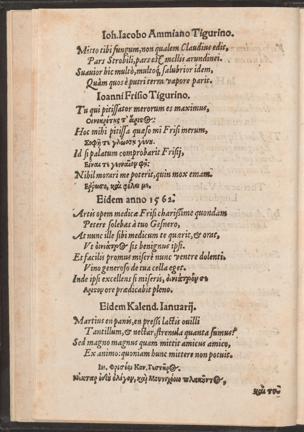 Ioh. Iacobo Ammiano Tigurino.
Mitto tibi fungum, non qualem Claudius edit,
Pars Strobili, pars est mellis arundinei.
Suavior hic multò, multoq́; salubrior idem,
Quàm quos è putri terra vapore parit.
Ioanni Frisio Tigurino.
Tu qui pitissator merorum es maximus,
Hoc mihi pitissa quæso mi Frisi merum,
Id si palatum comprobarit Frisij,
Nihil morari me poteris, quin mox emam.
Eidem anno 1562.
Artis opem medicæ Frisi charissime quondam
Petere solebas à tuo Gesnero,
At nunc ille sibi medicum te quærit, & orat,
Vt sis benignus ipsi.
Et facilis promus miserè nunc ventre dolenti,
Vino generoso de tua cella eget.
Inde ipsi excellens si miseris,
ore prædicabit pleno.
Eidem Kalend. Ianuarij.
Martius en panis, en pressi lactis ovilli
Tantillum, & nectar, strenula quanta sumus?
Sed magno magnus quam mittit amicus amico,
Ex animo: quoniam hunc mittere non potuit.
καὶ τοῦ